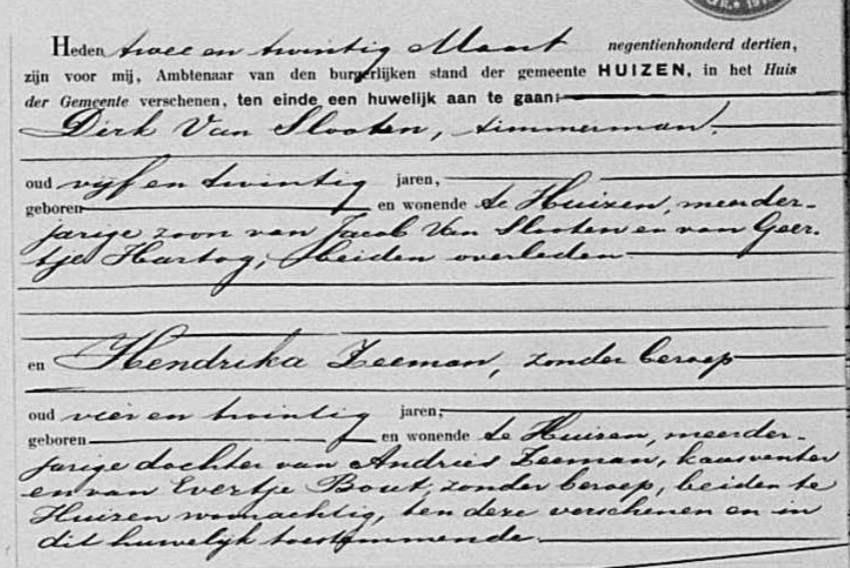 Heden twee en twintig Maart negentienhonderd dertien,
zijn voor mij, Ambtenaar van den burgerlijken stand der gemeente HUIZEN, in het Huis
der Gemeente verschenen, ten einde een huwelijk aan te gaan:
Dirk Van Slooten, timmerman.
oud vijf en twintig jaren,
geboren en wonende te Huizen, meerder-
jarige zoon van Jacob Van Slooten en van Geer-
tje Hartog, beiden overleden
en Hendrika Zeeman, zonder beroep
oud vier en twintig jaren,
geboren en wonende te Huizen, meerder-
jarige dochter van Andries Zeeman, kaasventer
en van Evertje Bout, zonder beroep, beiden te
Huizen woonachtig, ten deze verschenen en in
dit huwelijk toestemmende.